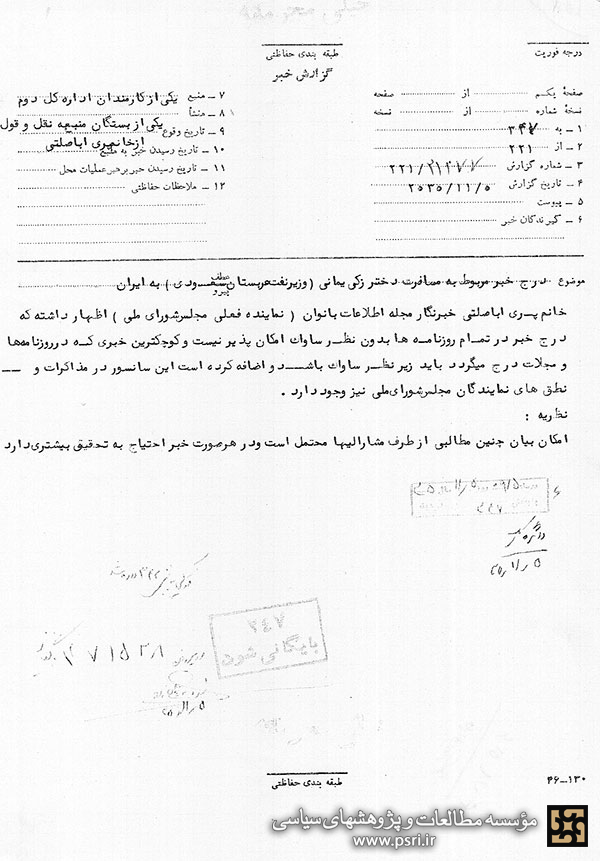 درجه فوریت
طبقه بندی حفاظتی
گزارش خبر
صفحهٔ یکم از صفحه
نسخهٔ شماره از نسخه
۱ ــ به ۳۴۷
۲ ــ از ۲۲۱
۳ ــ شماره گزارش ۲۲۱/۲۱۴۷۷
۴ ــ تاریخ گزارش ۲۵۳۵/۱۱/۵
۵ ــ پیوست
۶ ــ گیرندگان خبر
۷ ــ منبع یکی از کارمندان اداره کل دوم
۸ ــ منشأ یکی از بستگان منبعه نقل و قول
۹ ــ تاریخ وقوع از خانم پری اباصلتی
۱۰ ــ تاریخ رسیدن خبر به منبع
۱۱ ــ تاریخ رسیدن خبر برهبر عملیات محل
۱۲ ــ ملاحظات حفاظتی
موضوع درج خبر مربوط به مسافرت دختر زکی یمانی (وزیر نفت عربستان سعودی) به ایران
عطف
پیرو
خانم پری اباصلتی خبرنگار مجله اطلاعات بانوان (نماینده فعلی مجلس شورای ملی) اظهار داشته که
درج خبر در تمام روزنامه ها بدون نظر ساواك امکان پذیر نیست و کوچکترین خبری که در روزنامه‌ها
و مجلات درج میگردد باید زیر نظر ساواك باشد و اضافه کرده است این سانسور در مذاکرات و ــ
نطق های نمایندگان مجلس شورای ملی نیز وجود دارد .
نظریه :
امکان بیان چنین مطالبی از طرف مشارالیها محتمل است و در هر صورت خبر احتیاج به تحقیق بیشتری دارد
۳۴۷
بایگانی شود
طبقه بندی حفاظتی
۴۶ــ۱۳۰
مؤسسه مطالعات و پژوهشهای سیاسی
www.psri.ir